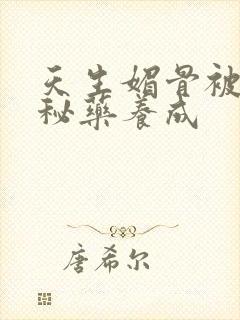 天生媚骨被
秘药养成
唐希尔